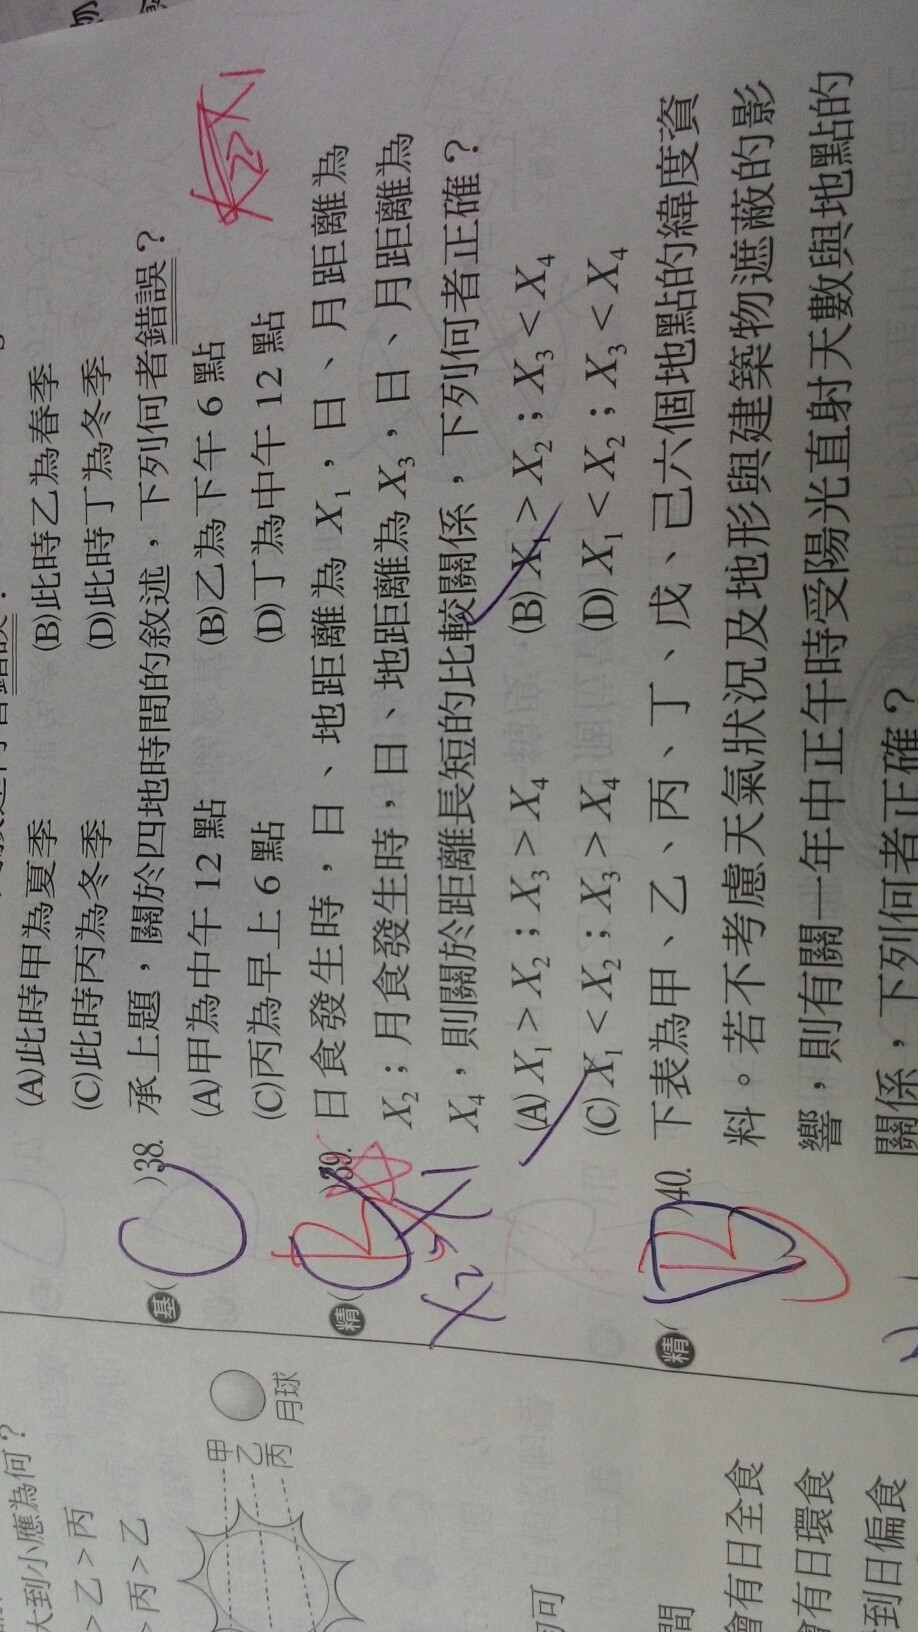 (A)此時甲為夏季 (B)此時乙為春季
(C)此時丙為冬季 (D)此時丁為冬季
基( C )38. 承上題，關於四地時間的敘述，下列何者錯誤？
(A)甲為中午 12 點 (B)乙為下午 6 點
(C)丙為早上 6 點 (D)丁為中午 12 點
精( B )39. 日食發生時，日、地距離為 X₁，日、月距離為
X₂；月食發生時，日、地距離為 X₃，日、月距離為
X₄，則關於距離長短的比較關係，下列何者正確？
(A) X₁ > X₂；X₃ > X₄ (B) X₁ > X₂；X₃ < X₄
(C) X₁ < X₂；X₃ > X₄ (D) X₁ < X₂；X₃ < X₄
X₂ X₁
精( B )40. 下表為甲、乙、丙、丁、戊、己六個地點的緯度資
料。若不考慮天氣狀況及地形與建築物遮蔽的影
響，則有關一年中正午時受陽光直射天數與地點的
關係，下列何者正確？
大到小應為何？
> 乙 > 丙
> 丙 > 乙
甲
乙
丙
月球
可
間
會有日全食
會有日環食
到日偏食